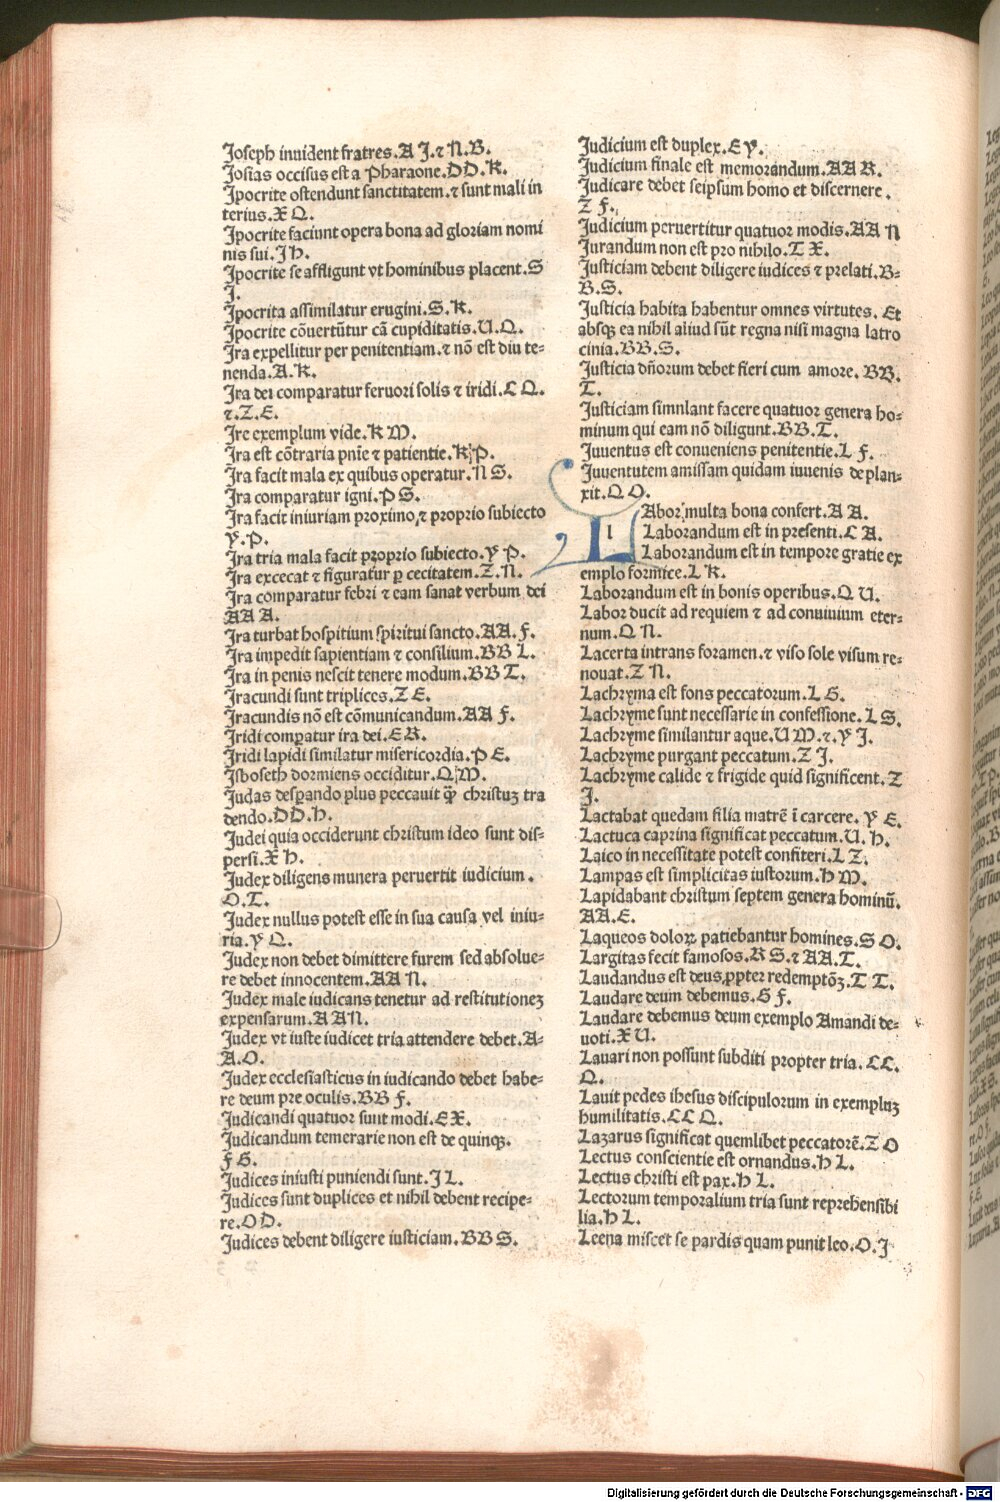 Joseph inuident fratres.A J.⁊ N.B.
Josias occisus est a Pharaone.DD.K.
Jpocrite ostendunt sanctitatem.⁊ sunt mali in
terius.X Q.
Jpocrite faciunt opera bona ad gloriam nomi
nis sui.J H.
Jpocrite se affligunt vt hominibus placent.S
J.
Jpocrita assimilatur erugini.S.K.
Jpocrite cõuertũtur cã cupiditatis.U.Q.
Jra expellitur per penitentiam.⁊ nõ est diu te-
nenda.A.K.
Jra dei comparatur feruori solis ⁊ iridi.C Q.
⁊.Z.E.
Jre exemplum vide.K M.
Jra est cõtraria pnĩe ⁊ patientie.K P.
Jra facit mala ex quibus operatur.N S.
Jra comparatur igni.P S.
Jra facit iniuriam proximo,⁊ proprio subiecto
Y.P.
Jra tria mala facit proprio subiecto.Y P.
Jra excecat ⁊ figuratur ꝑ cecitatem.Z.N.
Jra comparatur febri ⁊ eam sanat verbum dei
AA A.
Jra turbat hospitium spiritui sancto.AA.F.
Jra impedit sapientiam ⁊ consilium.BB L.
Jra in penis nescit tenere modum.BB T.
Jracundi sunt triplices.Z E.
Jracundis nõ est cõmunicandum.AA F.
Jridi comꝑatur ira dei.E R.
Jridi lapidi similatur misericordia.P E.
Jsboseth dormiens occiditur.Q M.
Judas desꝑando plus peccauit q̃ꝫ christuꝫ tra
dendo.DD.H.
Judei quia occiderunt christum ideo sunt dis-
persi.X H.
Judex diligens munera peruertit iudicium.
O.T.
Judex nullus potest esse in sua causa vel iniu-
ria.Y Q.
Judex non debet dimittere furem sed absolue-
re debet innocentem.AA N.
Judex male iudicans tenetur ad restitutioneꝫ
expensarum.A AN.
Judex vt iuste iudicet tria attendere debet.A-
A.O.
Judex ecclesiasticus in iudicando debet habe-
re deum pre oculis.BB F.
Judicandi quatuor sunt modi.E X.
Judicandum temerarie non est de quinqꝫ.
F G.
Judices iniusti puniendi sunt.J L.
Judices sunt duplices et nihil debent recipe-
re.O D.
Judices debent diligere iusticiam.BB S.
Judicium est duplex.E Y.
Judicium finale est memorandum.AA R.
Judicare debet seipsum homo et discernere.
Z F.
Judicium peruertitur quatuor modis.AA N
Jurandum non est pro nihilo.T X.
Justiciam debent diligere iudices ⁊ prelati.B-
B.S.
Justicia habita habentur omnes virtutes. Et
absqꝫ ea nihil aliud sũt regna nisi magna latro
cinia.BB.S.
Justicia dñorum debet fieri cum amore. BB.
T.
Justiciam simnlant facere quatuor genera ho-
minum qui eam nõ diligunt.BB.T.
Juuentus est conueniens penitentie.L F.
Juuentutem amissam quidam iuuenis deplan-
xit.Q O.
LAbor multa bona confert.A A.
Laborandum est in presenti.C A.
Laborandum est in tempore gratie ex
emplo formice.L K.
Laborandum est in bonis operibus.Q U.
Labor ducit ad requiem ⁊ ad conuiuium eter-
num.Q N.
Lacerta intrans foramen.⁊ viso sole visum re-
nouat.Z N.
Lachryma est fons peccatorum.L G.
Lachryme sunt necessarie in confessione.L S.
Lachryme similantur aque.U M.⁊.Y J.
Lachryme purgant peccatum.Z J.
Lachryme calide ⁊ frigide quid significent.Z
J.
Lactabat quedam filia matrẽ ĩ carcere. Y E.
Lactuca caprina significat peccatum.U.H.
Laico in necessitate potest confiteri.L Z.
Lampas est simplicitas iustorum.H M.
Lapidabant christum septem genera hominũ.
AA.E.
Laqueos doloꝝ patiebantur homines.S O.
Largitas fecit famosos.R S.⁊ AA.T.
Laudandus est deus,ꝓpter redemptõꝫ.T T.
Laudare deum debemus.G F.
Laudare debemus deum exemplo Amandi de-
uoti.X U.
Lauari non possunt subditi propter tria.CC.
Q.
Lauit pedes ihesus discipulorum in exempluꝫ
humilitatis.CC Q.
Lazarus significat quemlibet peccatorẽ.Z O
Lectus conscientie est ornandus.H L.
Lectus christi est pax.H L.
Lectorum temporalium tria sunt reprehensibi
lia.H L.
Leena miscet se pardis quam punit leo.O.J
Digitalisierung gefördert durch die Deutsche Forschungsgemeinschaft - DFG